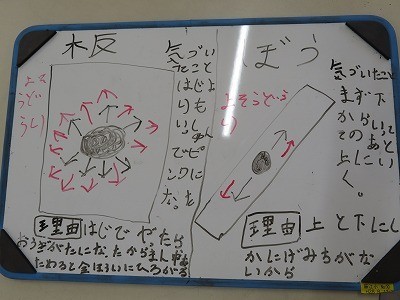 板
よそう
どう
うり
気づい
たこと
はじよ
りも
いっしゅん
でピ
ンクに
なった
理由
はじでやったら
おうぎがたになったからまん中
だと全ほういにひろがる
ぼう
よそうどうり
気づいたこと
まず下
からいって
そのあと
上にい
く。
理由
上と下にし
かにげみちがな
いから